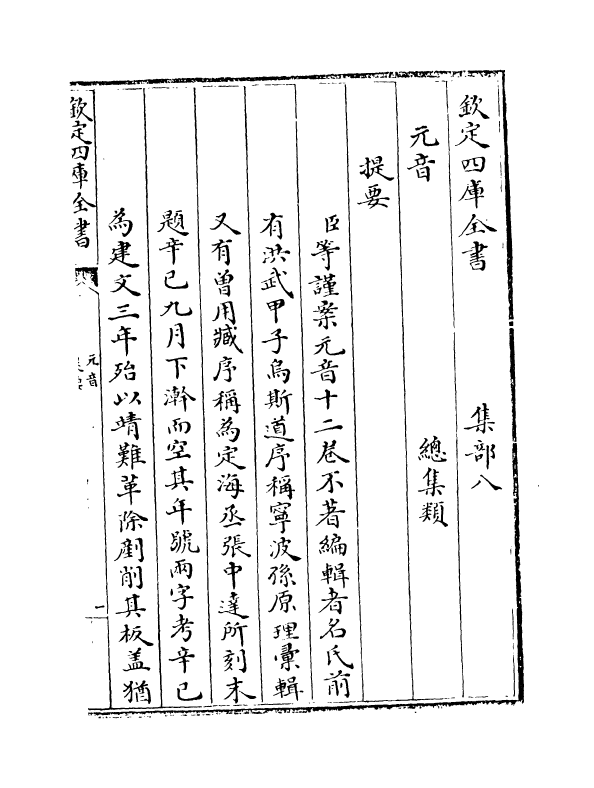 欽定四庫全書　集部八
元音　總集類
提要
臣等謹案元音十二卷不著編輯者名氏前
有洪武甲子烏斯道序稱寧波孫原理彚輯
又有曾用臧序稱為定海丞張中達所刻末
題辛巳九月下澣而空其年號兩字考辛巳
為建文三年殆以靖難革除剷削其板盖猶
欽定四庫全書　元音　一